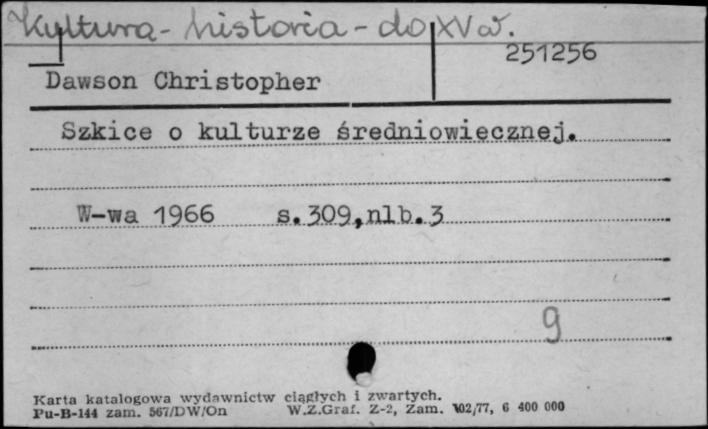 Kultura - historia - do XV w.
251256
Dawson Christopher
Szkice o kulturze średniowiecznej.
W-wa 1966 s.309,nlb.3
9
Karta katalogowa wydawnictw ciągłych i zwartych.
Pu-B-144 zam. 567/DW/On W.Z.Graf. Z-2, Zam. 102/77, 6 400 000